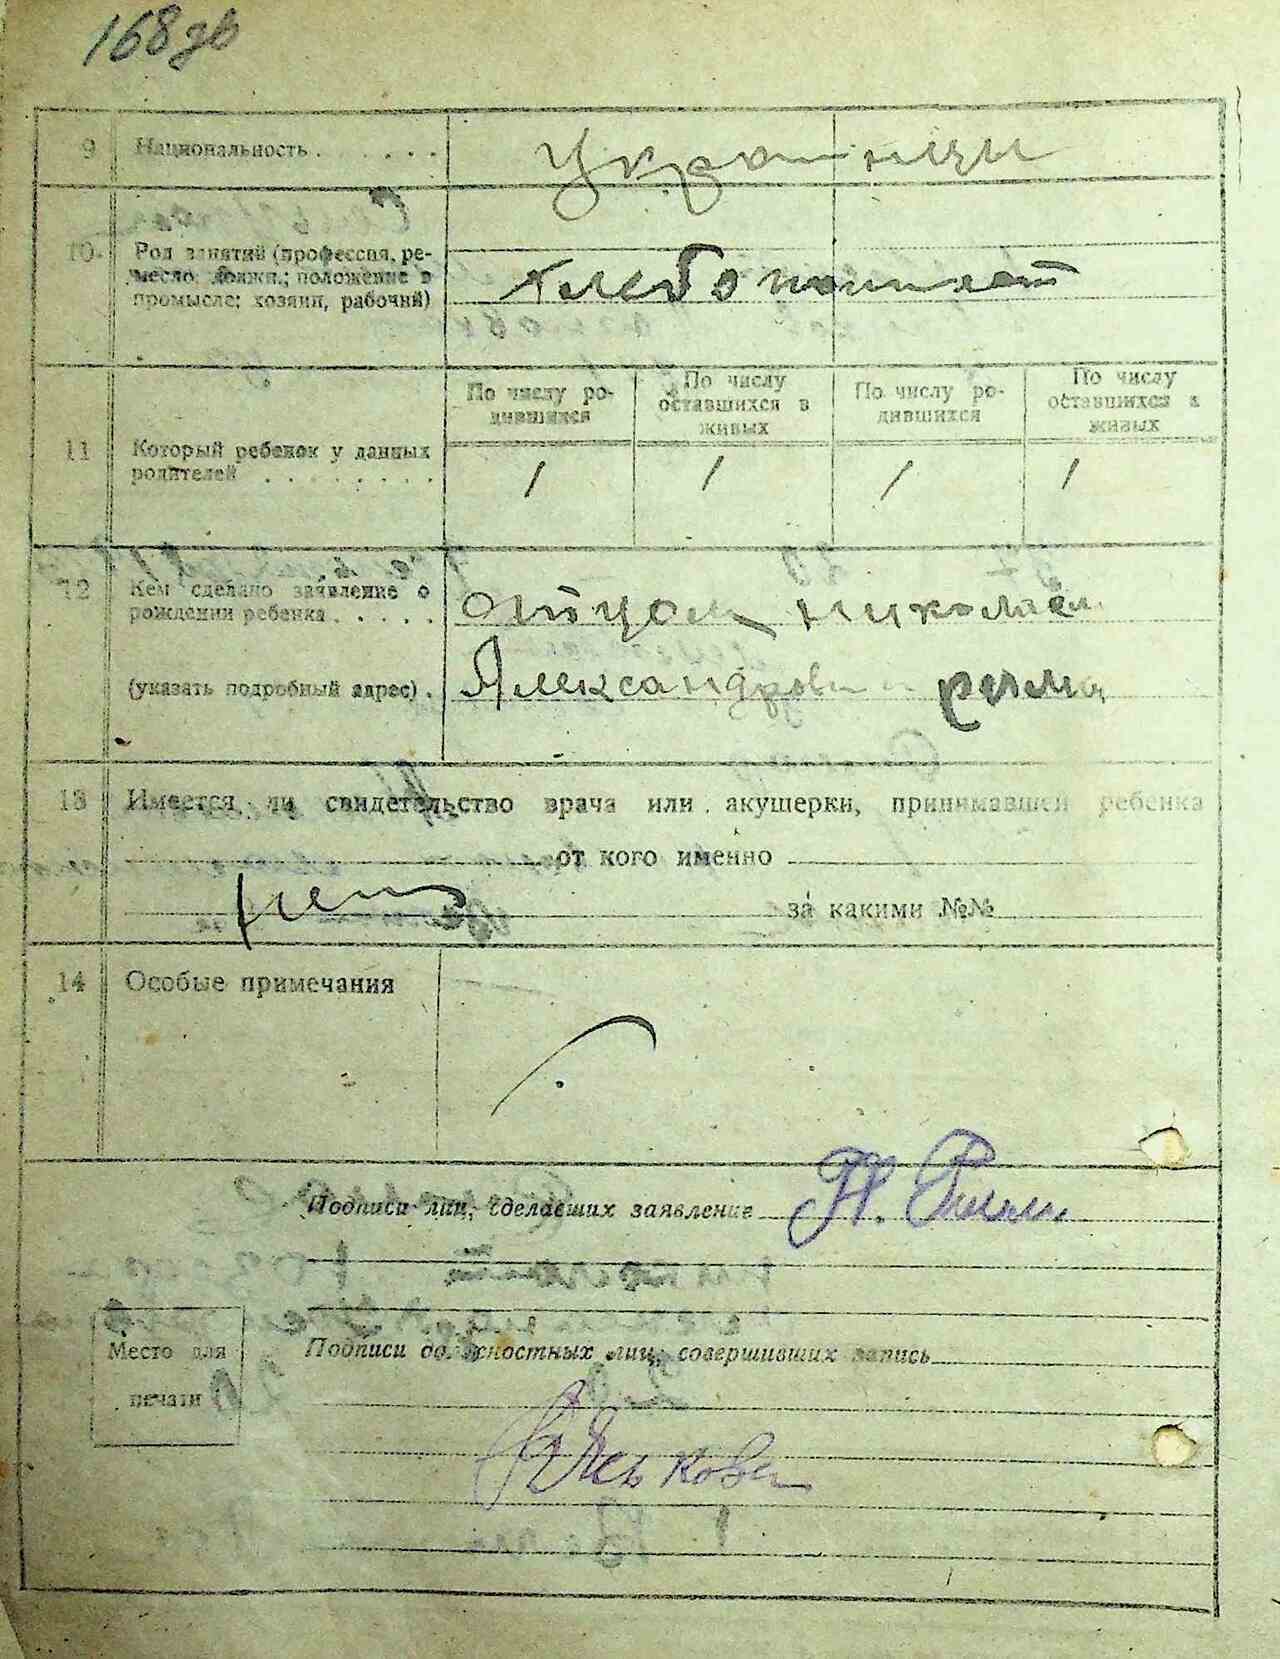 168 зв
9 Национальность . . . . . . украинцы
10. Род занятий (профессия, ре-
месло, должн.; положение в
промысле: хозяин, рабочий)
хлебопашест
По числу ро- По числу По числу ро- По числу
дившихся оставшихся в дившихся оставшихся в
живых живых
11 Который ребенок у данных
родителей . . . . . . . . 1 1 1 1
12 Кем сделано заявление о
рождении ребенка . . . . . отцом Николаем
(указать подробный адрес) . Александрови
13 Имеется ли свидетельство врача или акушерки, принимавшей ребенка
от кого именно
нет за какими №№
14 Особые примечания
Подписи лиц, сделавших заявление Н.
Место для
печати
Подписи должностных лиц, совершивших запись